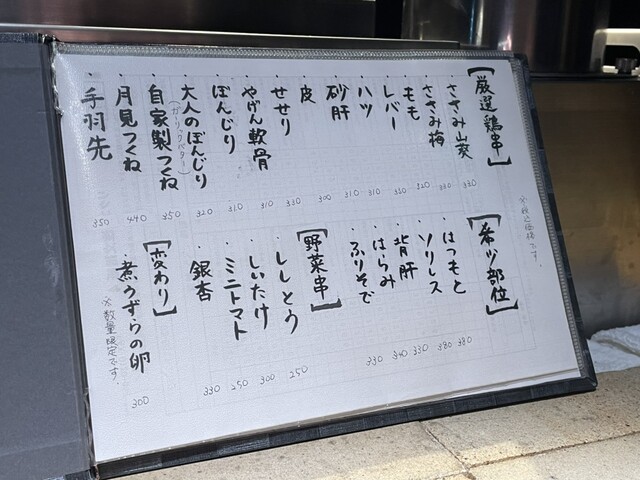 【厳選鶏串】
・ささみ山葵 330
・ささみ梅 330
・もも 320
・レバー 320
・ハツ 310
・砂肝 310
・皮 300
・せせり 330
・やげん軟骨 310
・ぼんじり 310
・大人のぼんじり 320
(ガーリックバター)
・自家製つくね 350
・月見つくね 440
・手羽先 350
※税込価格です。
【希少部位】
・はつもと 380
・ソリレス 380
・背肝 340
・はらみ 330
・ふりそで
【野菜串】
・ししとう 250
・しいたけ 300
・ミニトマト 250
・銀杏 330
【変わり】
・煮うずらの卵 300
※数量限定です。